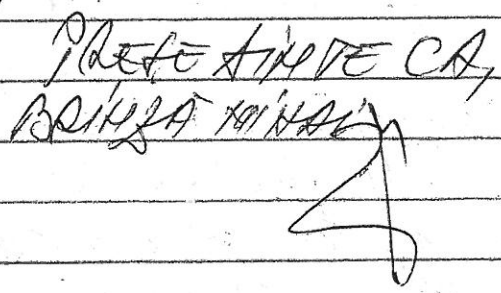 PREȘEDINTE CA,
BRÎNZĂ MIHAI